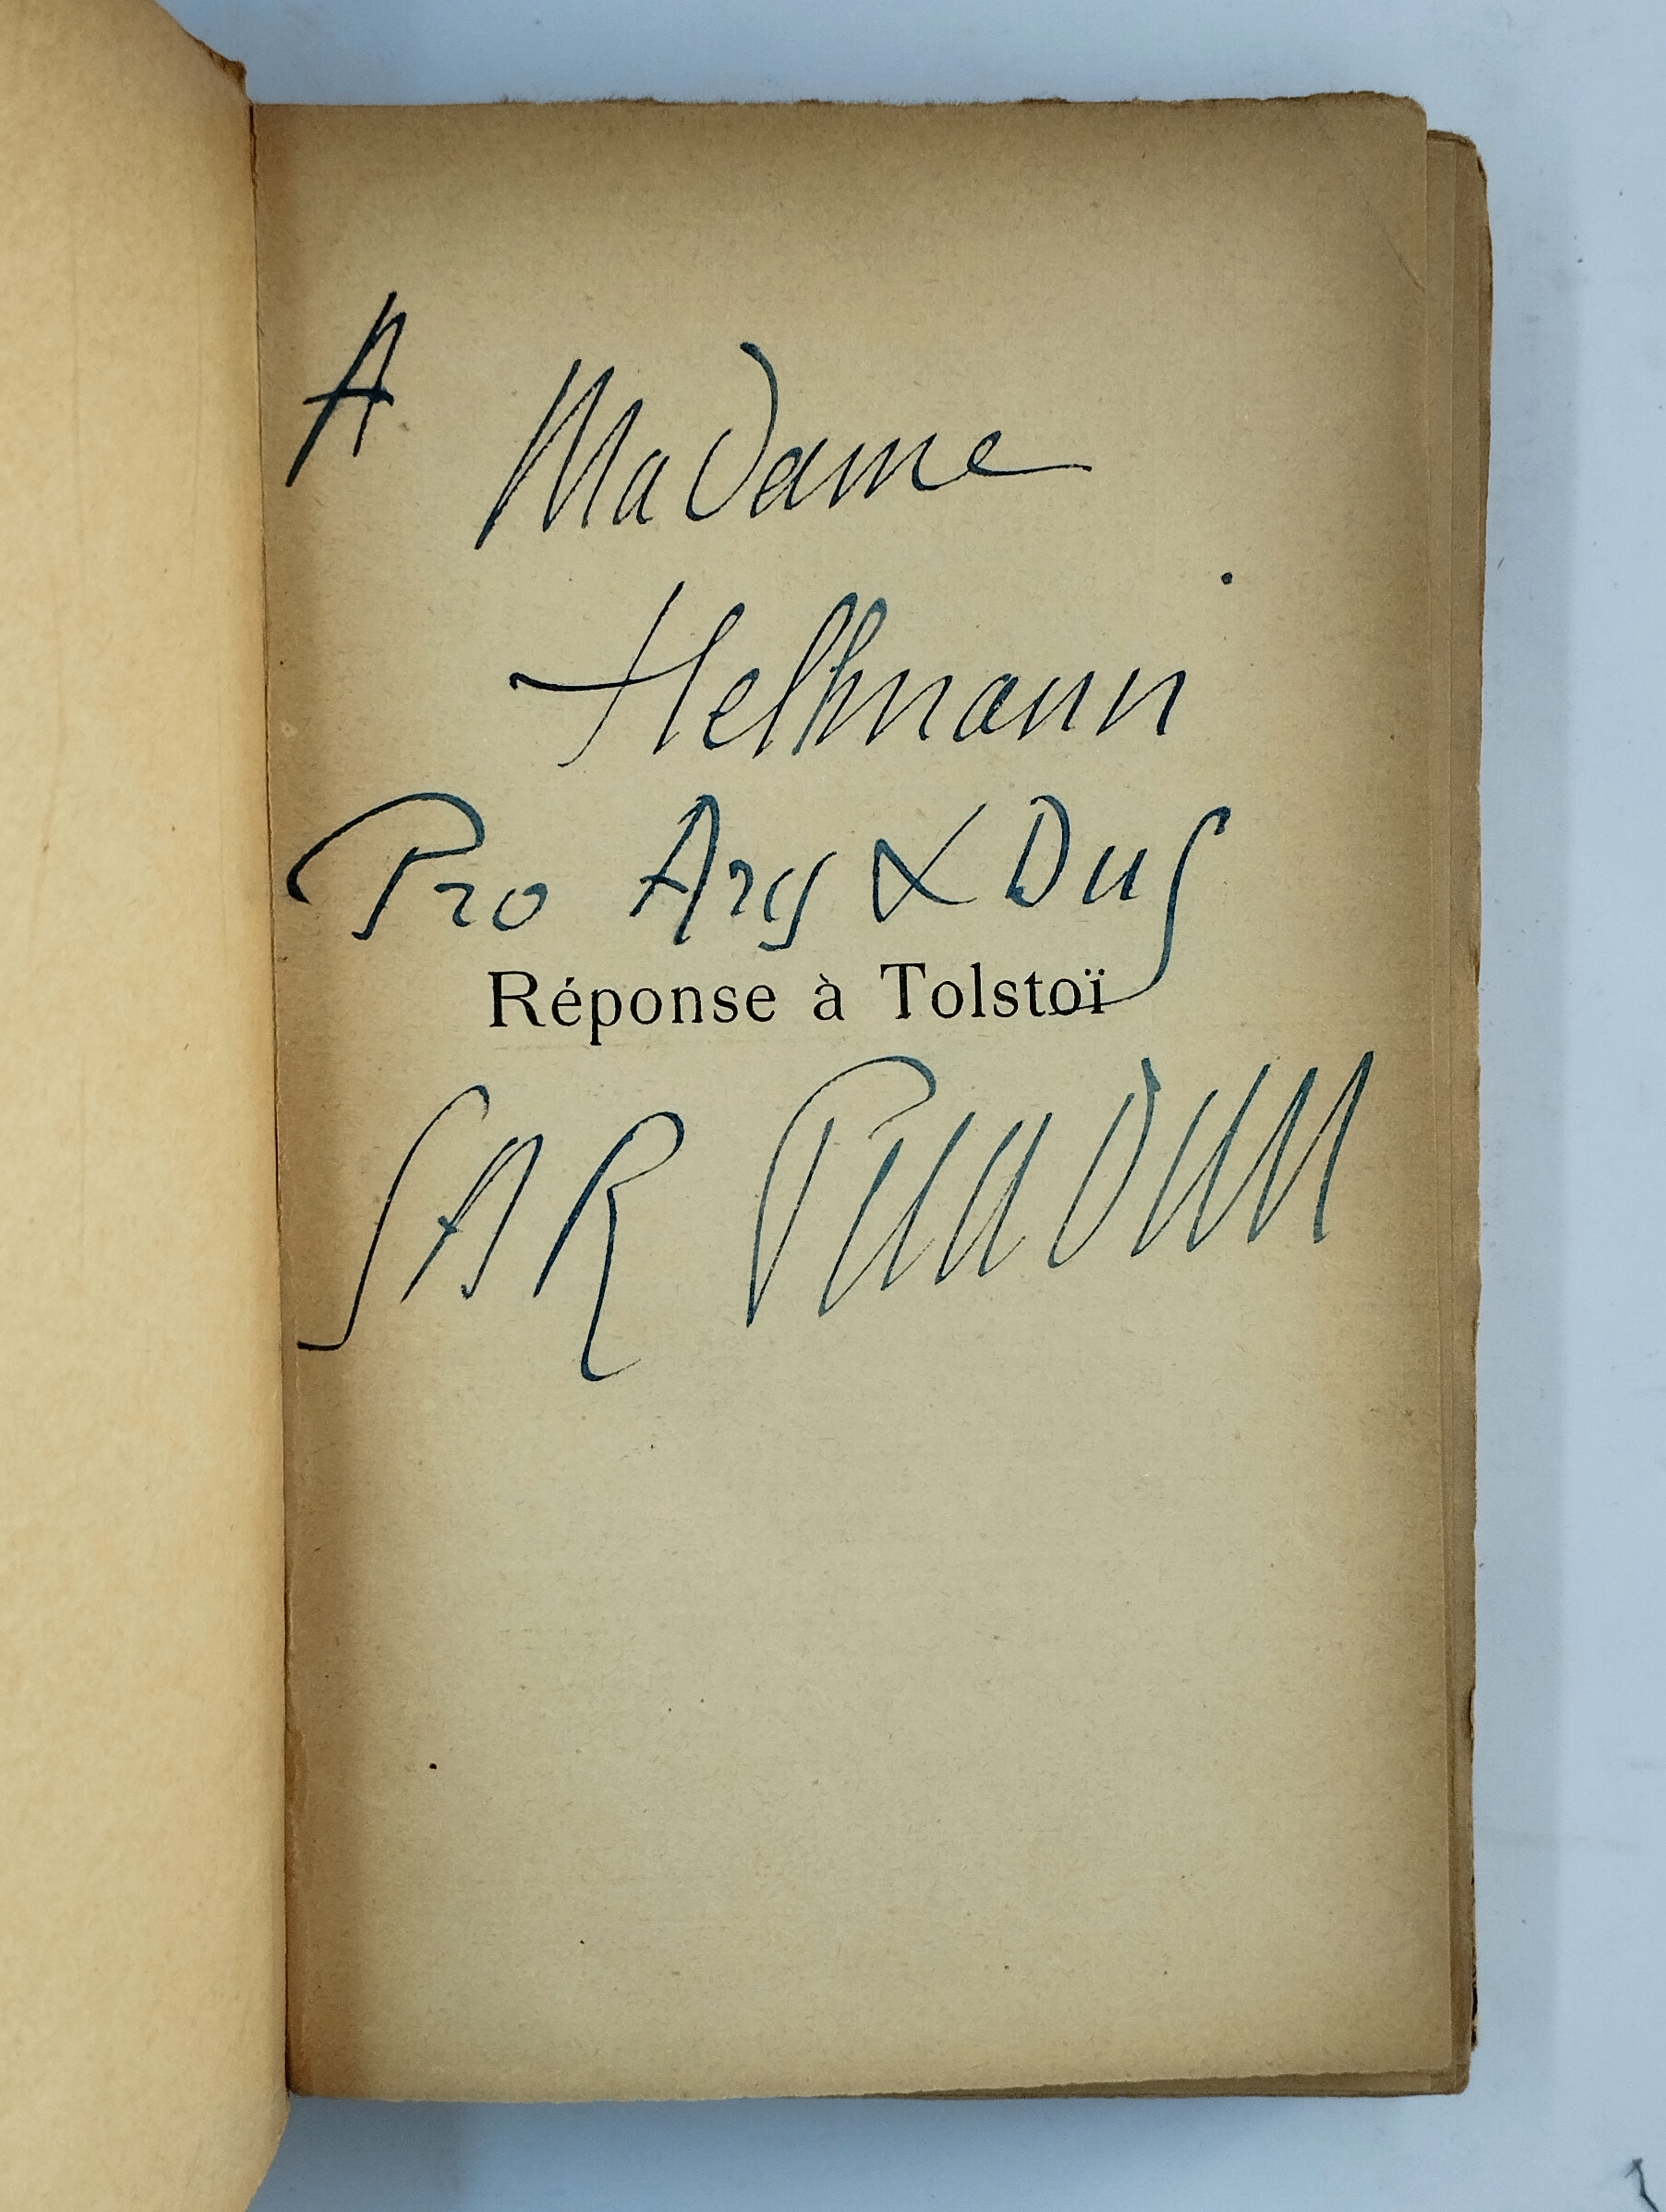 A Madame
Hellmann
Pro &
Réponse à Tolstoï
SAR PELADAN